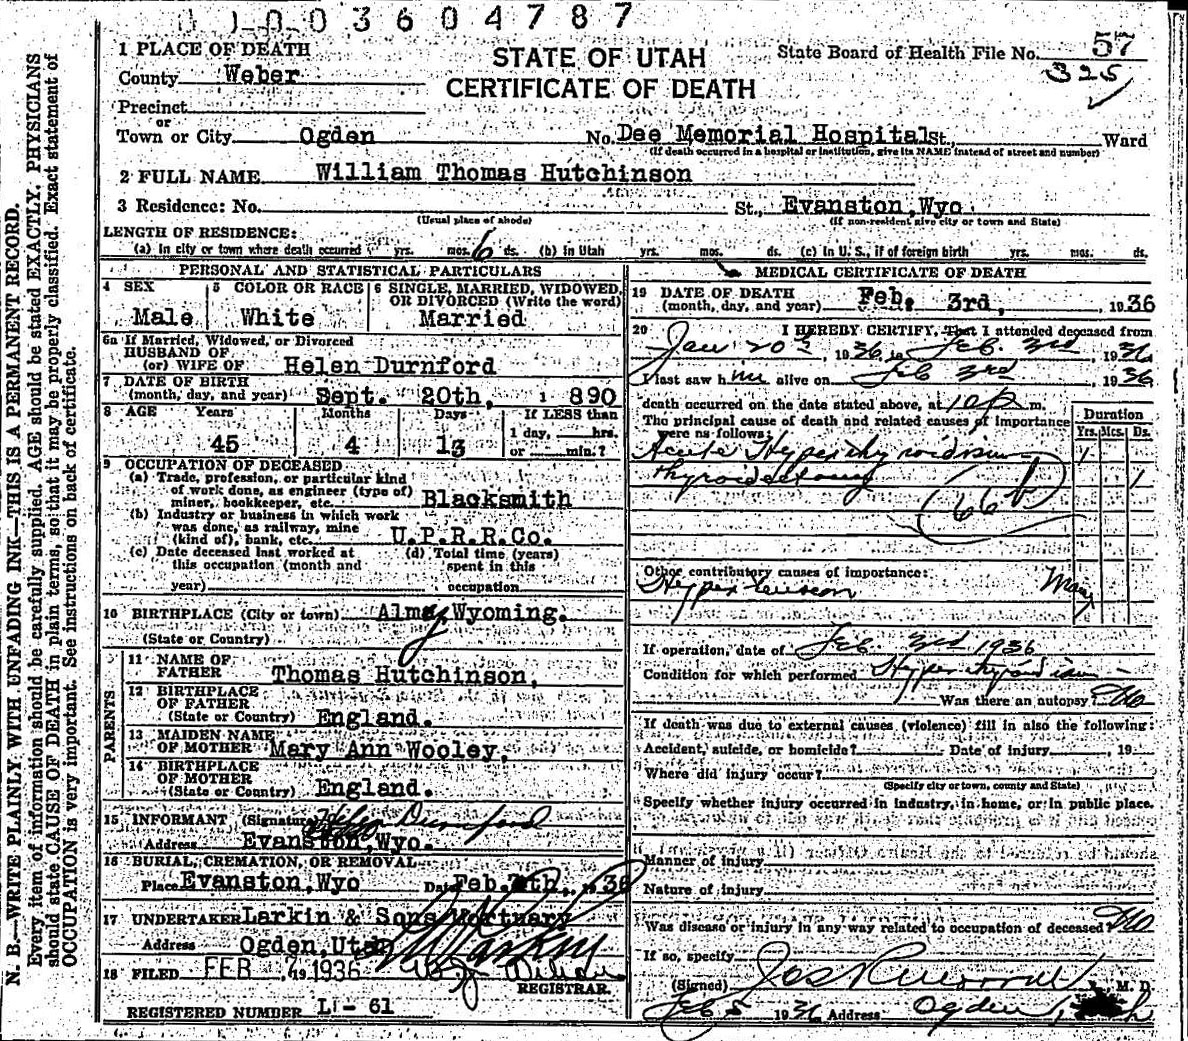 0003604787
STATE OF UTAH
CERTIFICATE OF DEATH
State Board of Health File No. 57
325
1 PLACE OF DEATH
County Weber
Precinct
or
Town or City Ogden No. Dee Memorial Hospital St., Ward
(If death occurred in a hospital or institution, give its NAME instead of street and number)
2 FULL NAME William Thomas Hutchinson
3 Residence: No. St., Evanston, Wyo
(Usual place of abode) (If non-resident give city or town and State)
LENGTH OF RESIDENCE:
(a) In city or town where death occurred yrs. mos. 6 ds. (b) In Utah yrs. mos. ds. (c) In U. S., if of foreign birth yrs. mos. ds.
PERSONAL AND STATISTICAL PARTICULARS
4 SEX 5 COLOR OR RACE 6 SINGLE, MARRIED, WIDOWED,
OR DIVORCED (Write the word)
Male White Married
6a If Married, Widowed, or Divorced
HUSBAND OF
(or) WIFE OF Helen Durnford
7 DATE OF BIRTH
(month, day, and year) Sept. 20th, 1890
8 AGE Years Months Days If LESS than
1 day, hrs.
45 4 13 or min.?
9 OCCUPATION OF DECEASED
(a) Trade, profession, or particular kind
of work done, as engineer (type of)
miner, bookkeeper, etc. Blacksmith
(b) Industry or business in which work
was done, as railway, mine
(kind of), bank, etc. U.P.R.R.Co.
(c) Date deceased last worked at (d) Total time (years)
this occupation (month and spent in this
year) occupation
10 BIRTHPLACE (City or town) Almay Wyoming.
(State or Country)
PARENTS
11 NAME OF
FATHER Thomas Hutchinson,
12 BIRTHPLACE
OF FATHER
(State or Country) England.
13 MAIDEN NAME
OF MOTHER Mary Ann Wooley,
14 BIRTHPLACE
OF MOTHER
(State or Country) England.
15 INFORMANT (Signature) Helen Durnford
Address Evanston, Wyo.
16 BURIAL, CREMATION, OR REMOVAL
Place Evanston, Wyo Date Feb. 1936
17 UNDERTAKER Larkin & Sons Mortuary
Address Ogden, Utah
18 FILED FEB 7 1936
REGISTRAR.
REGISTERED NUMBER LI - 61
MEDICAL CERTIFICATE OF DEATH
19 DATE OF DEATH
(month, day, and year) Feb. 3rd, 1936
20 I HEREBY CERTIFY, That I attended deceased from
Jan 20th, 1936, to Feb. 3rd, 1936
I last saw him alive on Feb 3rd 1936
death occurred on the date stated above, at 10 p m.
The principal cause of death and related causes of importance
were as follows:
Duration
Yrs. Mos. Ds.
Acute Hyperthyroidism 1
thyroidectomy 1
(66b)
Other contributory causes of importance:
Hypertension Many
If operation, date of Feb. 3rd 1936
Condition for which performed Hyperthyroidism
Was there an autopsy? No
If death was due to external causes (violence) fill in also the following:
Accident, suicide, or homicide? Date of injury , 19
Where did injury occur?
(Specify city or town, county and State)
Specify whether injury occurred in industry, in home, or in public place.
Manner of injury
Nature of injury
Was disease or injury in any way related to occupation of deceased? No
If so, specify
(Signed) Jos R Morrell M. D.
Feb 5 1936 Address Ogden,
N. B.—WRITE PLAINLY WITH UNFADING INK—THIS IS A PERMANENT RECORD.
Every item of information should be carefully supplied. AGE should be stated EXACTLY. PHYSICIANS
should state CAUSE OF DEATH in plain terms, so that it may be properly classified. Exact statement of
OCCUPATION is very important. See instructions on back of certificate.